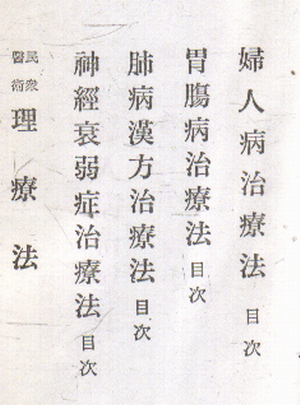 婦人病治療法 目次
胃腸病治療法 目次
肺病漢方治療法 目次
神經衰弱症治療法 目次
民衆醫術 理療法